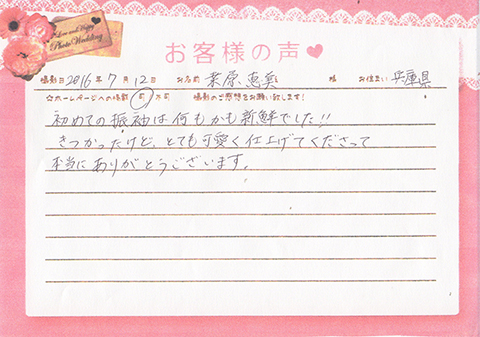 Love and Enjoy
Photo Wedding
お客様の声♥
撮影日 2016年 7月 12日 お名前 葉原 恵美 様 お住まい 兵庫県
☆ホームページへの掲載 可 不可 撮影のご感想をお願い致します!
初めての振袖は何もかも新鮮でした!!
きつかったけど、とても可愛く仕上げてくださって
本当にありがとうございます。